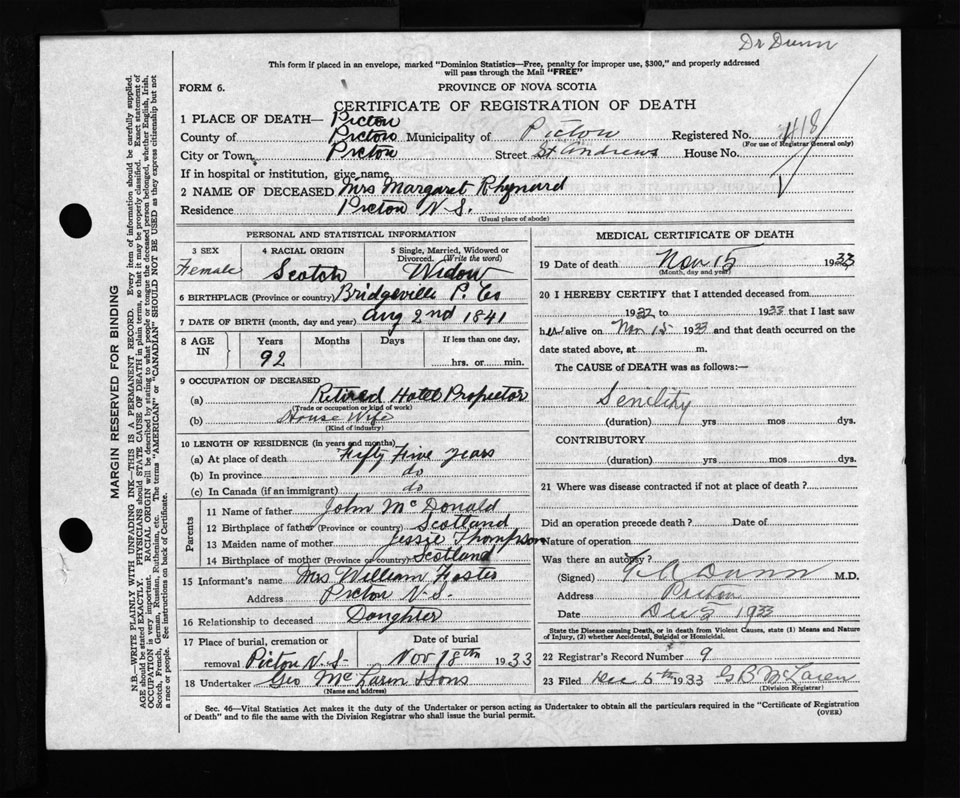 Dr Dunn
This form if placed in an envelope, marked "Dominion Statistics—Free, penalty for improper use, $300," and properly addressed
will pass through the Mail "FREE"
FORM 6.
PROVINCE OF NOVA SCOTIA
CERTIFICATE OF REGISTRATION OF DEATH
1 PLACE OF DEATH— Picton
County of Picton Municipality of Picton Registered No. 418
(For use of Registrar General only)
City or Town, Picton Street St Andrews House No.
If in hospital or institution, give name
2 NAME OF DECEASED Mrs Margaret Rhynard
Residence Picton N-S.
(Usual place of abode)
PERSONAL AND STATISTICAL INFORMATION
3 SEX 4 RACIAL ORIGIN 5 Single, Married, Widowed or
Divorced. (Write the word)
Female Scotch Widow
6 BIRTHPLACE (Province or country) Bridgeville P. Co
7 DATE OF BIRTH (month, day and year) Aug 2nd 1841
8 AGE IN Years Months Days If less than one day,
92 hrs. or min.
9 OCCUPATION OF DECEASED
(a) Retired Hotel Propietor
(Trade or occupation or kind of work)
(b) House Wife
(Kind of industry)
10 LENGTH OF RESIDENCE (in years and months)
(a) At place of death Fifty Five years
(b) In province do
(c) In Canada (if an immigrant) do
Parents
11 Name of father John McDonald
12 Birthplace of father (Province or country) Scotland
13 Maiden name of mother Jessie Thompson
14 Birthplace of mother (Province or country) Scotland
15 Informant's name Mrs William Foster
Address Picton N-S-
16 Relationship to deceased Doughter
17 Place of burial, cremation or Date of burial
removal Picton N.S- Nov 18th 1933
18 Undertaker Geo McLaren &Sons
(Name and address)
MEDICAL CERTIFICATE OF DEATH
19 Date of death Nov 15 1933
(Month, day and year)
20 I HEREBY CERTIFY that I attended deceased from
1932 to 1933 that I last saw
her alive on Nov 15 1933 and that death occurred on the
date stated above, at m.
The CAUSE of DEATH was as follows:—
Senility
(duration) yrs mos dys.
CONTRIBUTORY
(duration) yrs mos dys.
21 Where was disease contracted if not at place of death?
Did an operation precede death? Date of
Nature of operation
Was there an autopsy?
(Signed) Dunn M.D.
Address Picton
Date Dec 5 1933
State the Disease causing Death, or in death from Violent Causes, state (1) Means and Nature
of Injury, (2) whether Accidental, Suicidal or Homicidal.
22 Registrar's Record Number 9
23 Filed Dec 5th 1933 G B McLaren
(Division Registrar)
Sec. 46—Vital Statistics Act makes it the duty of the Undertaker or person acting as Undertaker to obtain all the particulars required in the "Certificate of Registration
of Death" and to file the same with the Division Registrar who shall issue the burial permit.
(OVER)
MARGIN RESERVED FOR BINDING
N.B.—WRITE PLAINLY WITH UNFADING INK—THIS IS A PERMANENT RECORD. Every item of information should be carefully supplied.
AGE should be stated EXACTLY. PHYSICIANS should STATE CAUSE OF DEATH in plain terms, so that it may be properly classified. Exact statement of
OCCUPATION is very important. RACIAL ORIGIN will be described by stating to what people or tongue the deceased person belonged, whether English, Irish,
Scotch, French, German, Russian, Ruthenian, etc. The terms "AMERICAN" or "CANADIAN" SHOULD NOT BE USED as they express citizenship but not
a race or people. See instructions on back of Certificate.